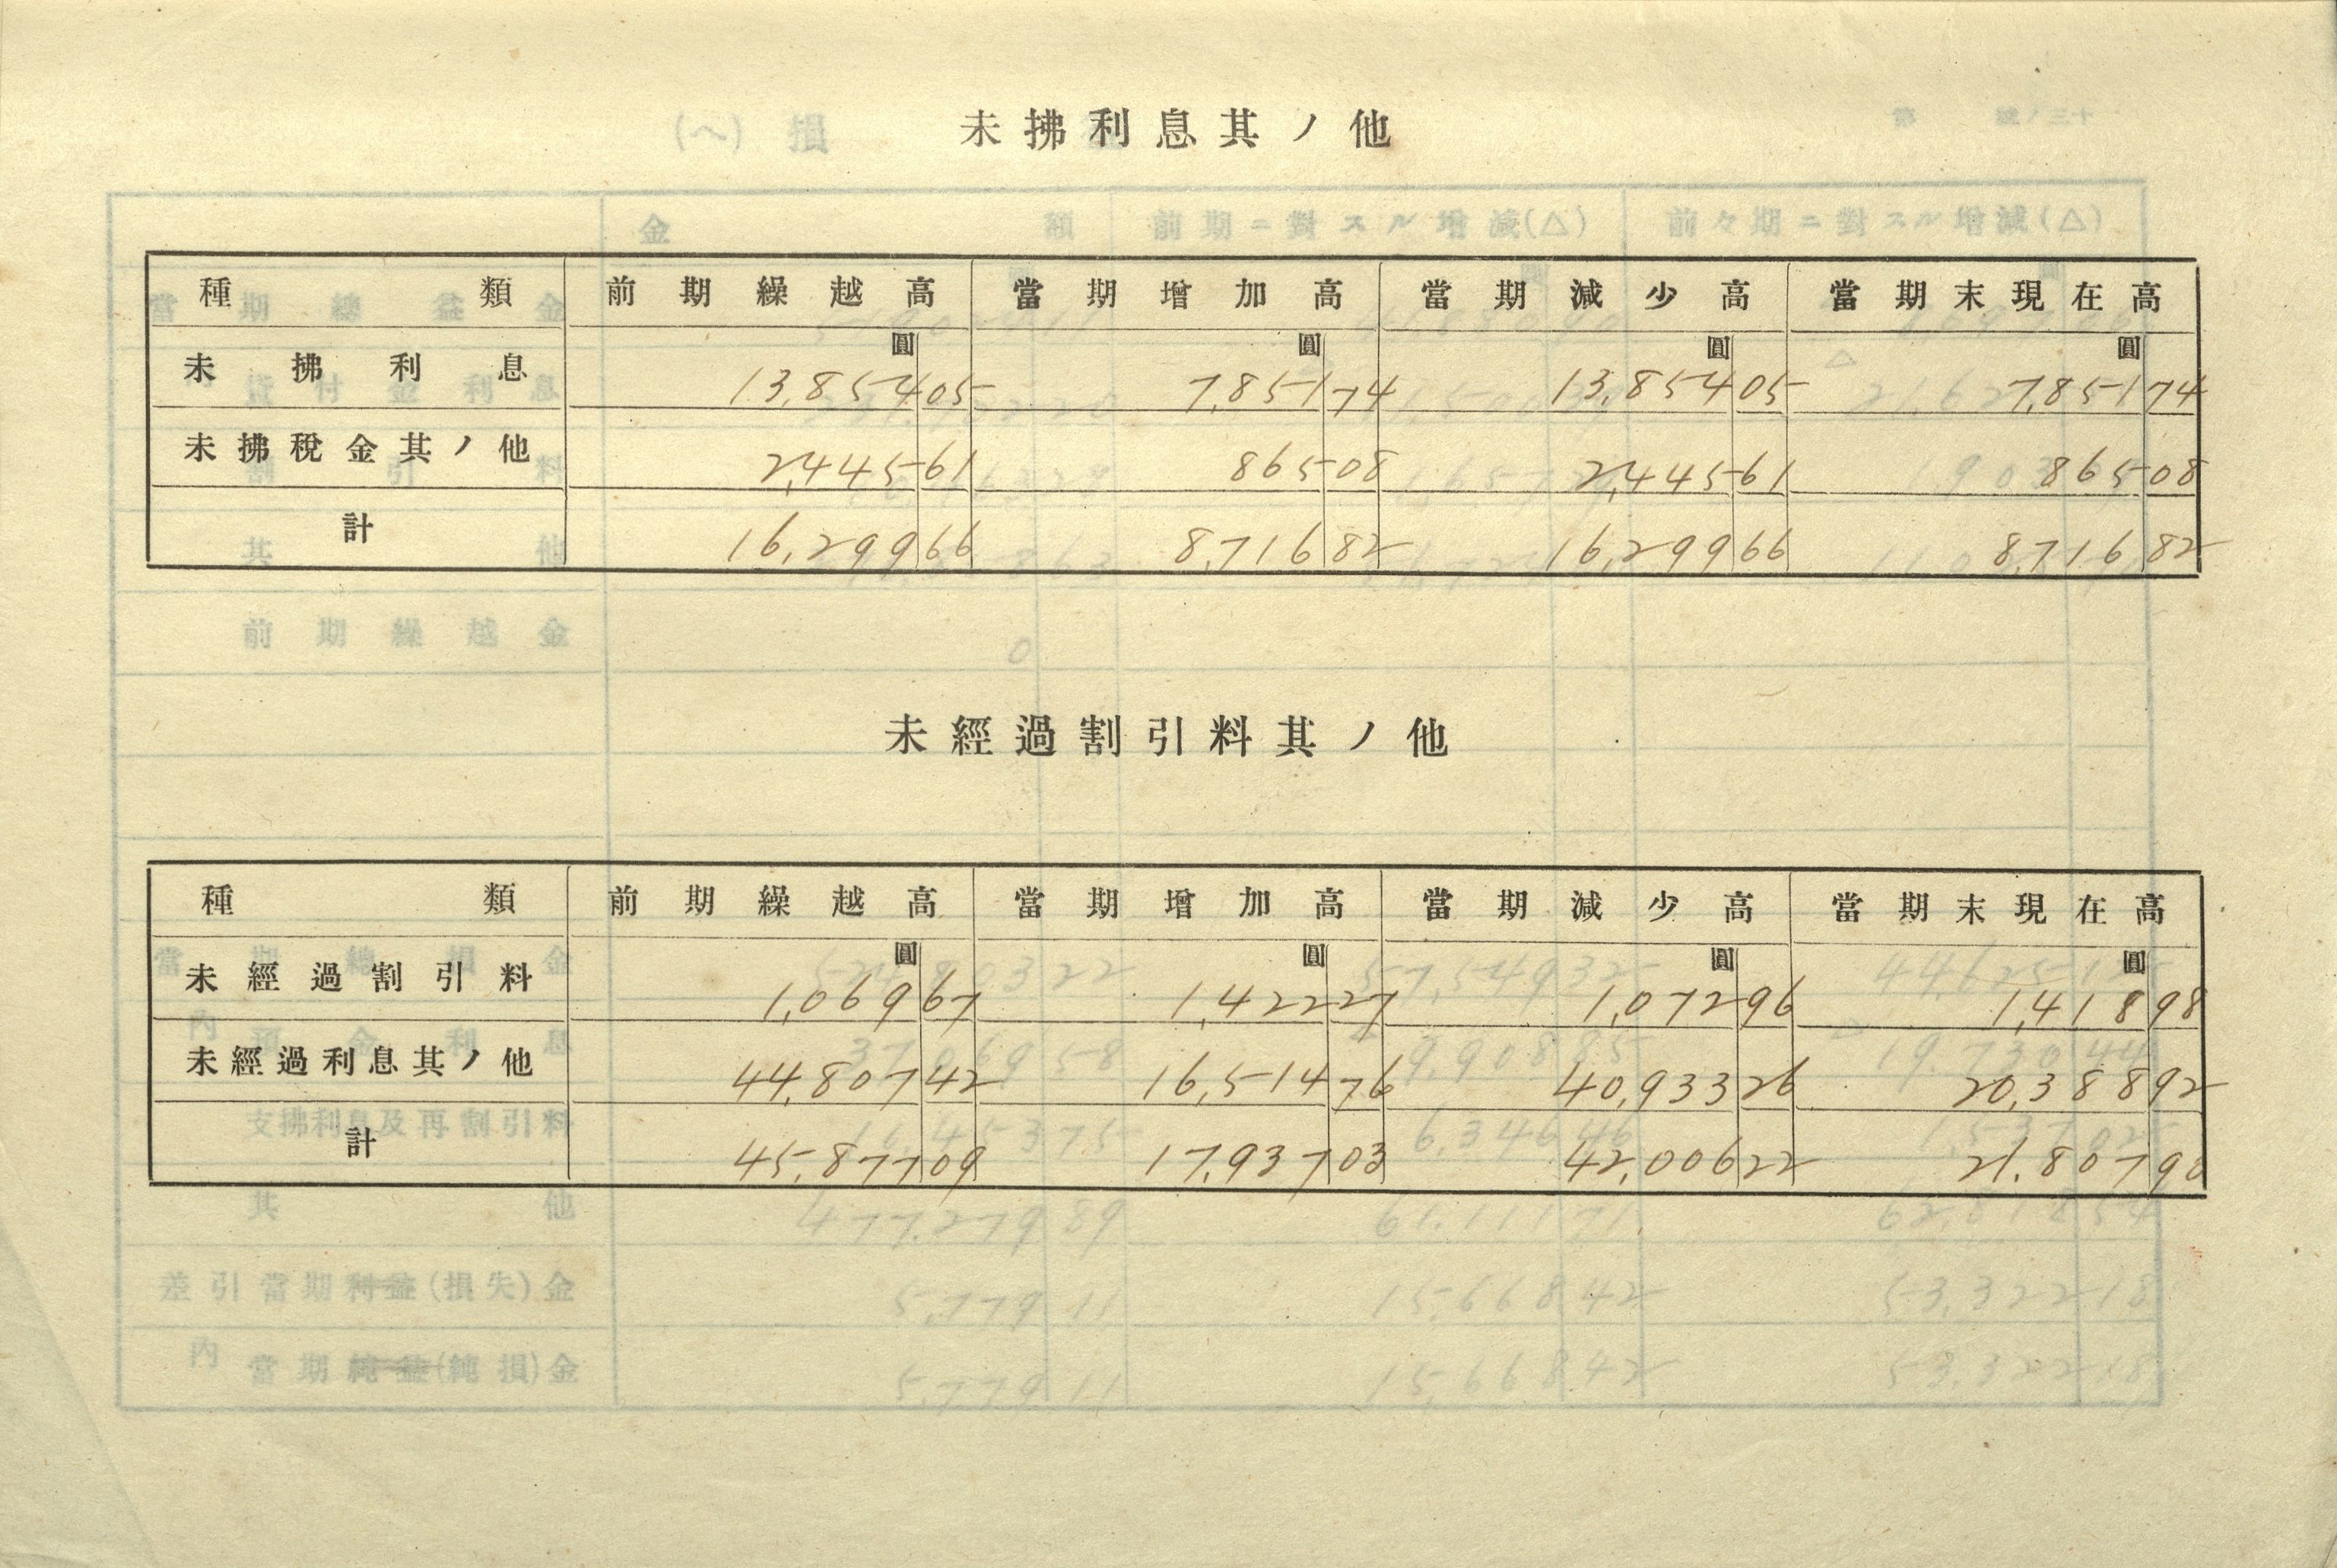 未拂利息其ノ他
種類 前期繰越高 當期增加高 當期減少高 當期末現在高
圓 圓 圓 圓
未拂利息 13,854 05 7,851 74 13,854 05 7,851 74
未拂稅金其ノ他 2,445 61 865 08 2,445 61 865 08
計 16,299 66 8,716 82 16,299 66 8,716 82
未經過割引料其ノ他
種類 前期繰越高 當期增加高 當期減少高 當期末現在高
圓 圓 圓 圓
未經過割引料 1,069 67 1,422 27 1,072 96 1,418 98
未經過利息其ノ他 44,807 42 16,514 76 40,933 26 20,388 92
計 45,877 09 17,937 03 42,006 22 21,807 90